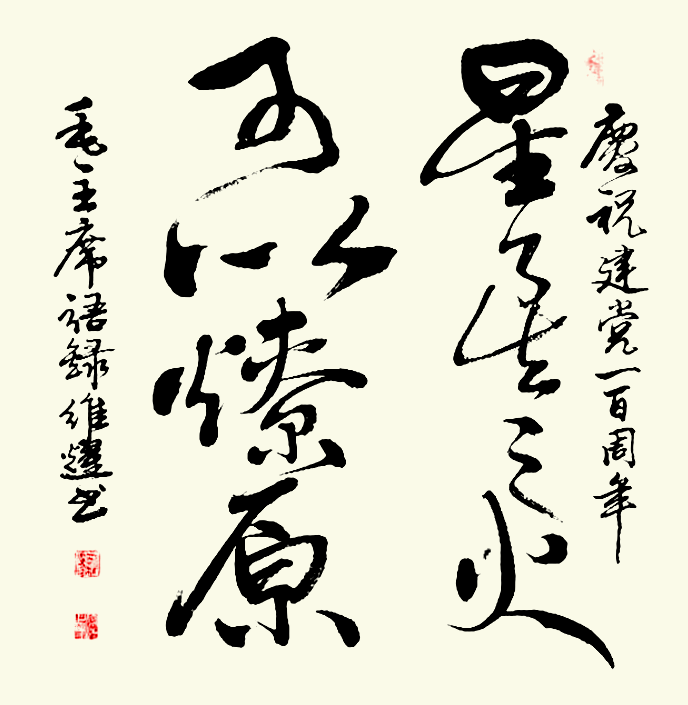 慶祝建党一百周年
星星之火
可以燎原
毛主席語録維耀书